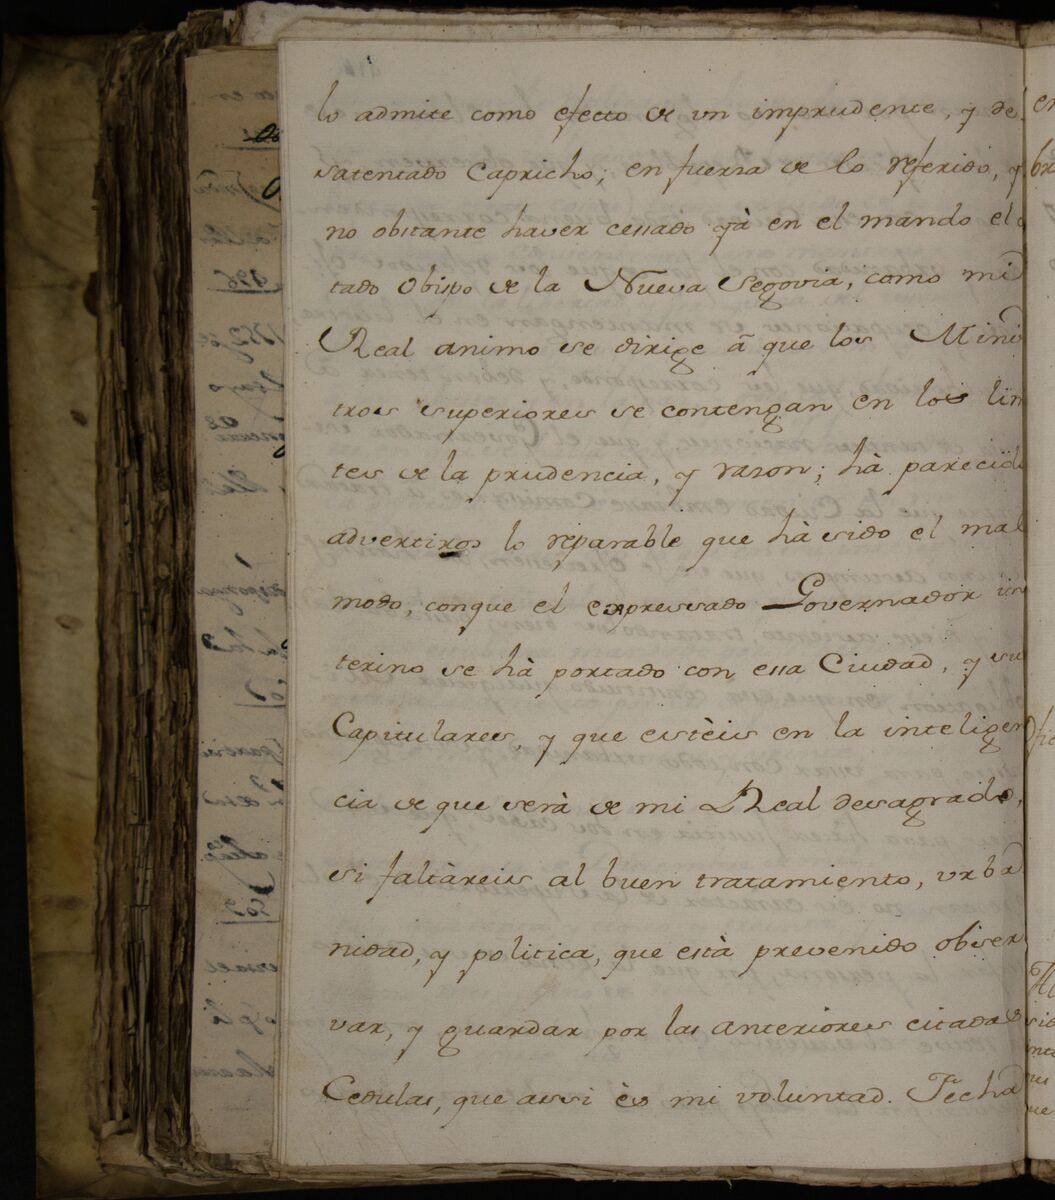 lo admite como efecto de un imprudente, y de
satentado Capricho; en fuerza de lo referido, y
no obstante haver cessado yà en el mando el
tado Obispo de la Nueva Segovia, como mi
Real animo se dirige â que los Minis
tros superiores se contengan en los lim
tes de la prudencia, y razon; hà parecido
advertiros lo reparable que hà sido el mal
modo, conque el expressado Governador in
terino se hà portado con essa Ciudad, y su
Capitulares, y que estèis en la inteligen
cia de que serà de mi Real desagrado,
si faltàreis al buen tratamiento, urba
nidad, y politica, que està prevenido obser
var, y guardar por las anteriores citadas
Cedulas, que assi ès mi voluntad. Fecha